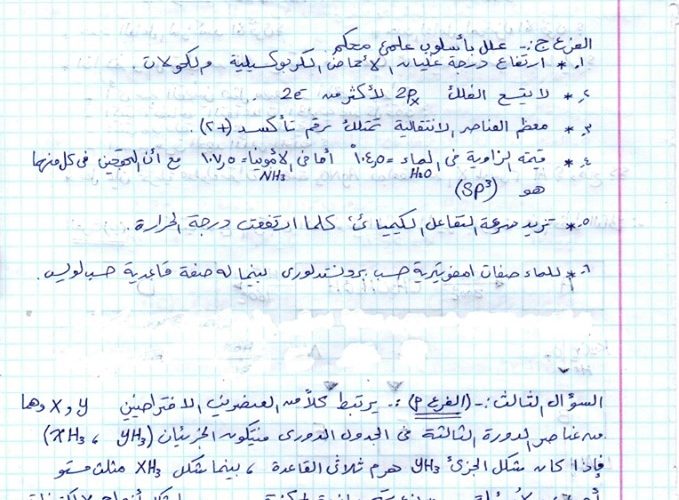 الفرع ج :- علل بأسلوب علمي محكم
١. * ارتفاع درجة غليان الأحماض الكربوكسيلية والكحولات .
٢. * لا يتسع الفلك 2Px لأكثر من 2e⁻ .
٣. * معظم العناصر الانتقالية تمتلك رقم تأكسد (+٢) .
٤. * قيمة الزاوية في الماء H₂O = ١٠٤,٥° أما في الأمونيا NH₃ = ١٠٧,٥ مع أن التهجين في كل منهما
هو (SP³)
٥. * تزيد سرعة التفاعل الكيميائي كلما ارتفعت درجة الحرارة .
٦. * للماء صفات امفوتيرية حسب برونستد لوري بينما له صفة قاعدية حسب لويس .
السؤال الثالث :- (الفرع أ) :- يرتبط كلاً من العنصرين الافتراضيين X و y وهما
من عناصر الدورة الثالثة في الجدول الدوري فيتكون الجزيئان (XH₃ ، yH₃)
فإذا كان شكل الجزئ yH₃ هرم ثلاثي القاعدة ، بينما شكل XH₃ مثلث مستو